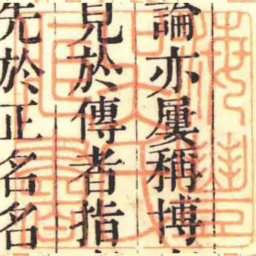 論亦屢稱博
見於傳者指
先於正名名